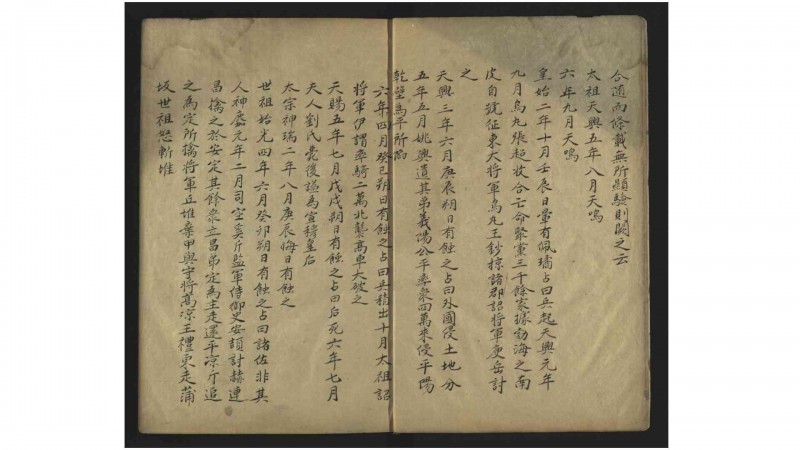 合通而條載無所顯驗則闕之云
太祖天興五年八月天鳴
六年九月天鳴
皇始二年十月壬辰日暈有佩璚占曰兵起天興元年
九月烏丸張超收合亡命聚黨三千餘家據勃海之南
皮自號征東大將軍烏丸王鈔掠諸郡詔將軍庾岳討
之
天興三年六月庚辰朔日有蝕之占曰外國侵土地分
五年五月姚興遣其弟義陽公平率衆四萬來侵平陽
乾壁爲平所陷
六年四月癸巳朔日有蝕之占曰兵稍出十月太祖詔
將軍伊謂率騎二萬北襲高車大破之
天賜五年七月戊戌朔日有蝕之占曰后死六年七月
夫人劉氏薨後謚爲宣穆皇后
太宗神瑞二年八月庚辰晦日有蝕之
世祖始光四年六月癸卯朔日有蝕之占曰諸佐非其
人神䴥元年二月司空奚斤監軍侍御史安頡討赫連
昌擒之於安定其餘衆立昌弟定爲主走還平凉斤追
之爲定所擒將軍丘堆棄甲與守將高凉王禮東走蒲
坂世祖怒斬堆